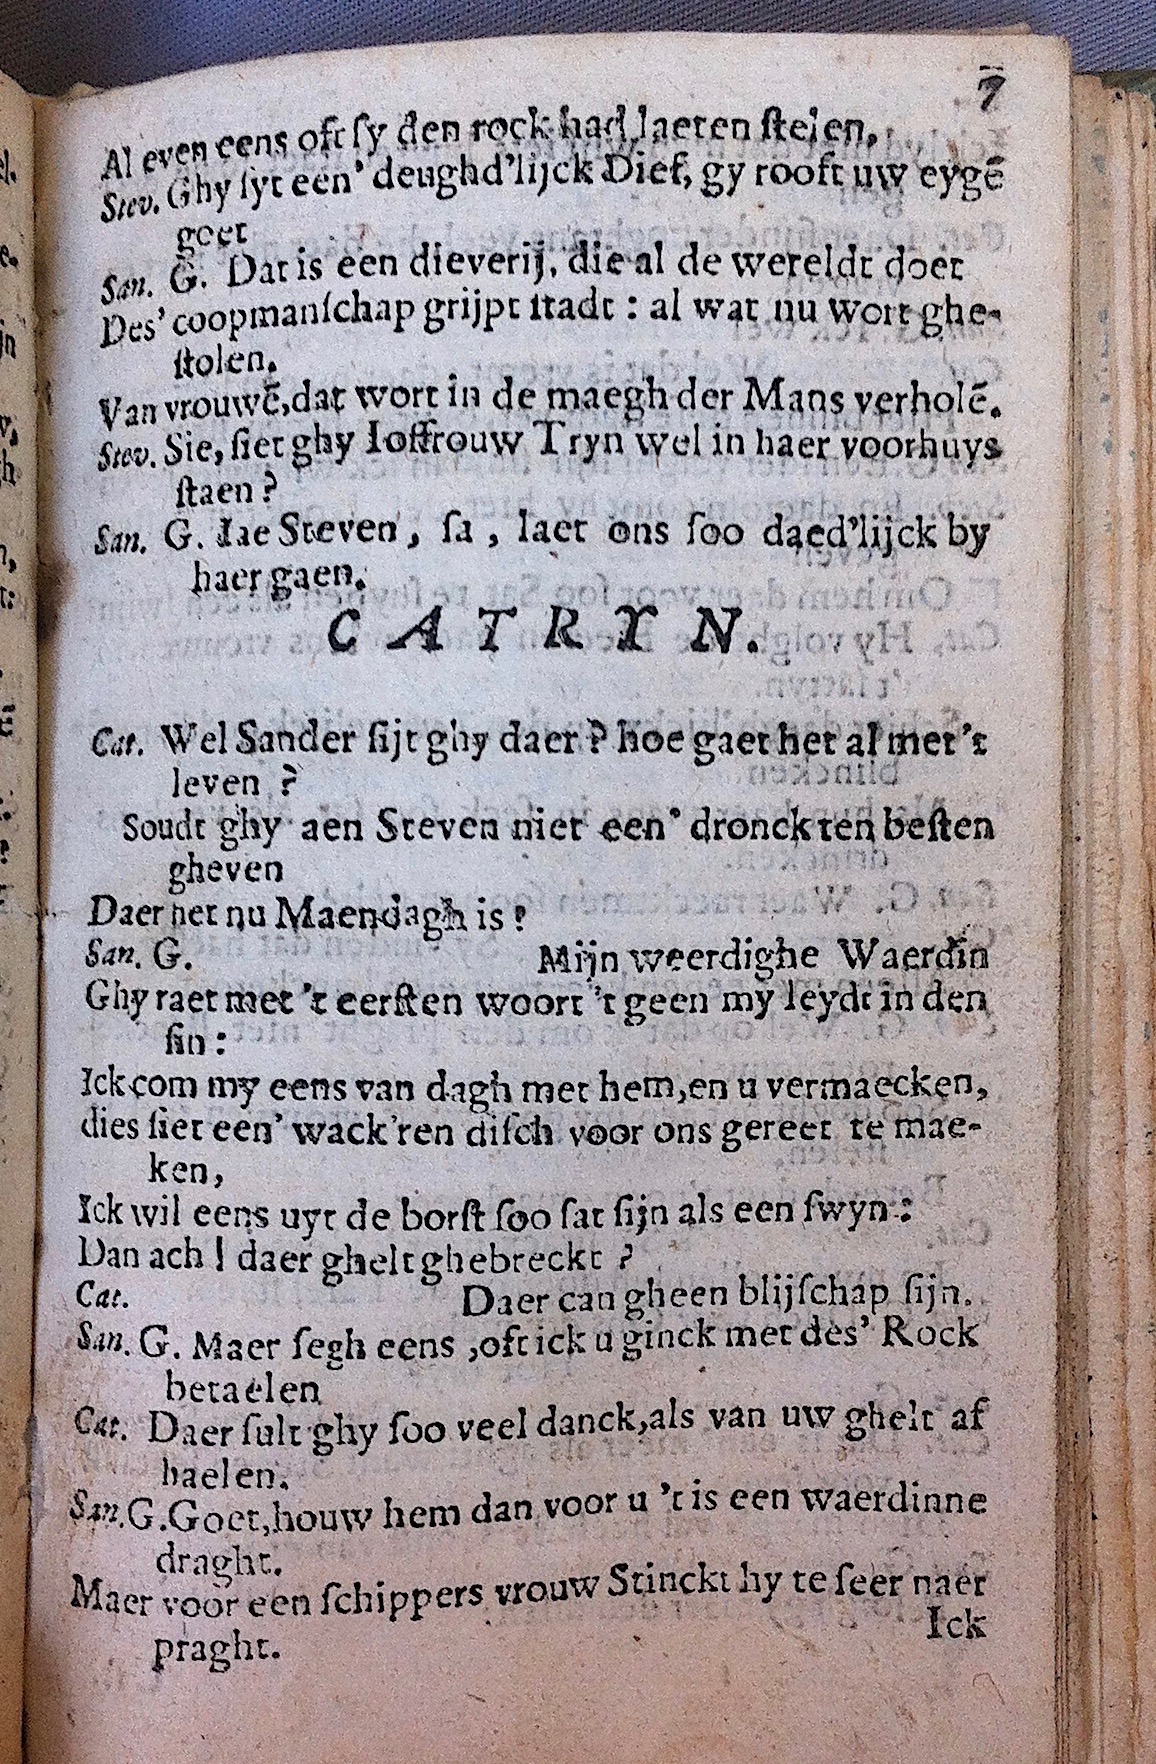 7
Al even eens oft ſy den rock had laeten ſtelen,
Stev. Ghy ſyt een' deughd'lijck Dief, gy rooft uw eygē
goet
San. G. Dat is een dieverij, die al de wereldt doet
Des' coopmanſchap grijpt ſtadt : al wat nu wort ghe-
ſtolen.
Van vrouwē, dat wort in de maegh der Mans verholē.
Stev. Sie, ſiet ghy Ioffrouw Tryn wel in haer voorhuys
ſtaen ?
San. G. Iae Steven, ſa, laet ons ſoo daed'lijck by
haer gaen.
CATRYN.
Cat. Wel Sander ſijt ghy daer ? hoe gaet het al met 't
leven ?
Soudt ghy aen Steven niet een' dronck ten beſten
gheven
Daer het nu Maendagh is ?
San. G. Mijn weerdighe Waerdin
Ghy raet met 't eerſten woort 't geen my leydt in den
ſin :
Ick com my eens van dagh met hem, en u vermaecken,
dies ſiet een' wack'ren diſch voor ons gereet te mae-
ken,
Ick wil eens uyt de borſt ſoo ſat ſijn als een ſwyn :
Dan ach ! daer ghelt ghebreckt ?
Cat. Daer can gheen blijſchap ſijn.
San. G. Maer ſegh eens, oft ick u ginck met des' Rock
betaelen
Cat. Daer ſult ghy ſoo veel danck, als van uw ghelt af
haelen.
San. G. Goet, houw hem dan voor u 't is een waerdinne
draght.
Maer voor een ſchippers vrouw Stinckt hy te ſeer naer
praght.
Ick